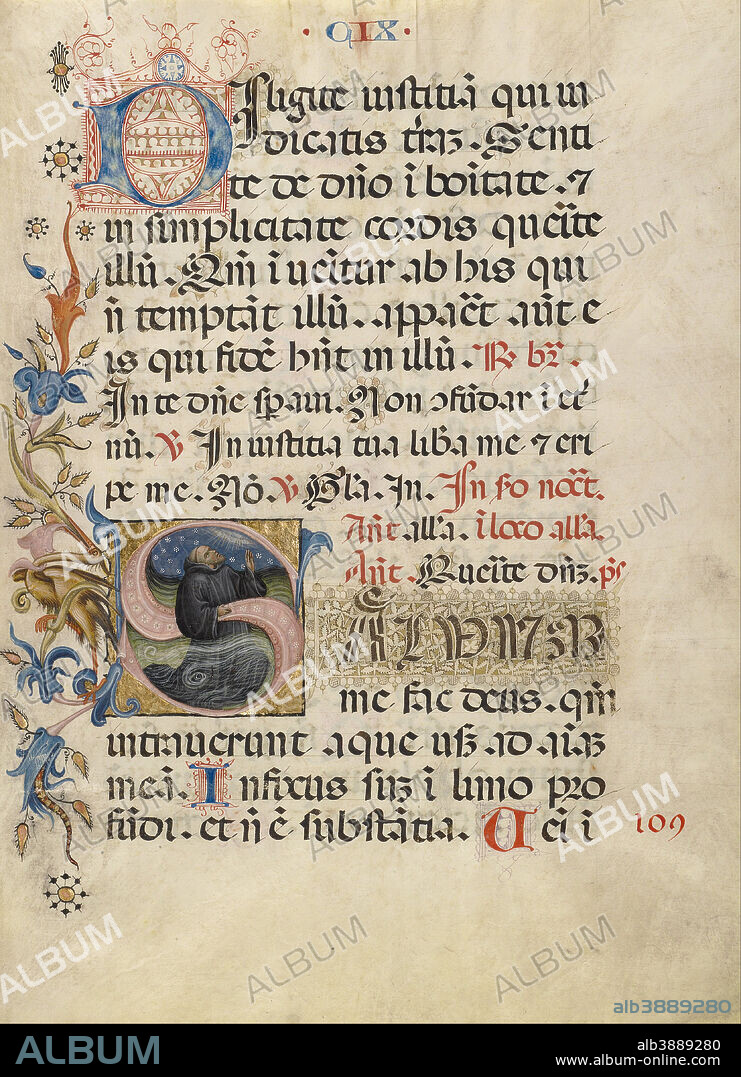 · CIX ·
Diligite iustitiā qui iu
dicatis t̄rāȝ. Senti
te de dn̄o ī boītate. ⁊
in simplicitate cordis querīte
illū. Qm̄ īuēitar ab his qui
n̄ temptāt illū. appaēt aūt e
is qui fidē hn̄t in illū. ℟ br̄.
In te dn̄e sp̄aui. Non ↄfūdar ī et̄
nū. ℣ In iustitia tua libā me ⁊ eri
pe me. Nō. ℣ Gl̄a. In. In s̄o noc̄t.
An̄t all̄a. ī loco all̄a.
An̄t. Querīte dn̄ȝ. p̄s
SALVVM
me fac deus. qm̄
intrauerunt aque usȝ ad aīaȝ
meā. Infixus suȝ ī limo pro
fūdi. et n̄ ē substātia. Ueī ī
109
ALBUM
alb3889280
ALBUM
alb3889280
www.album-online.com